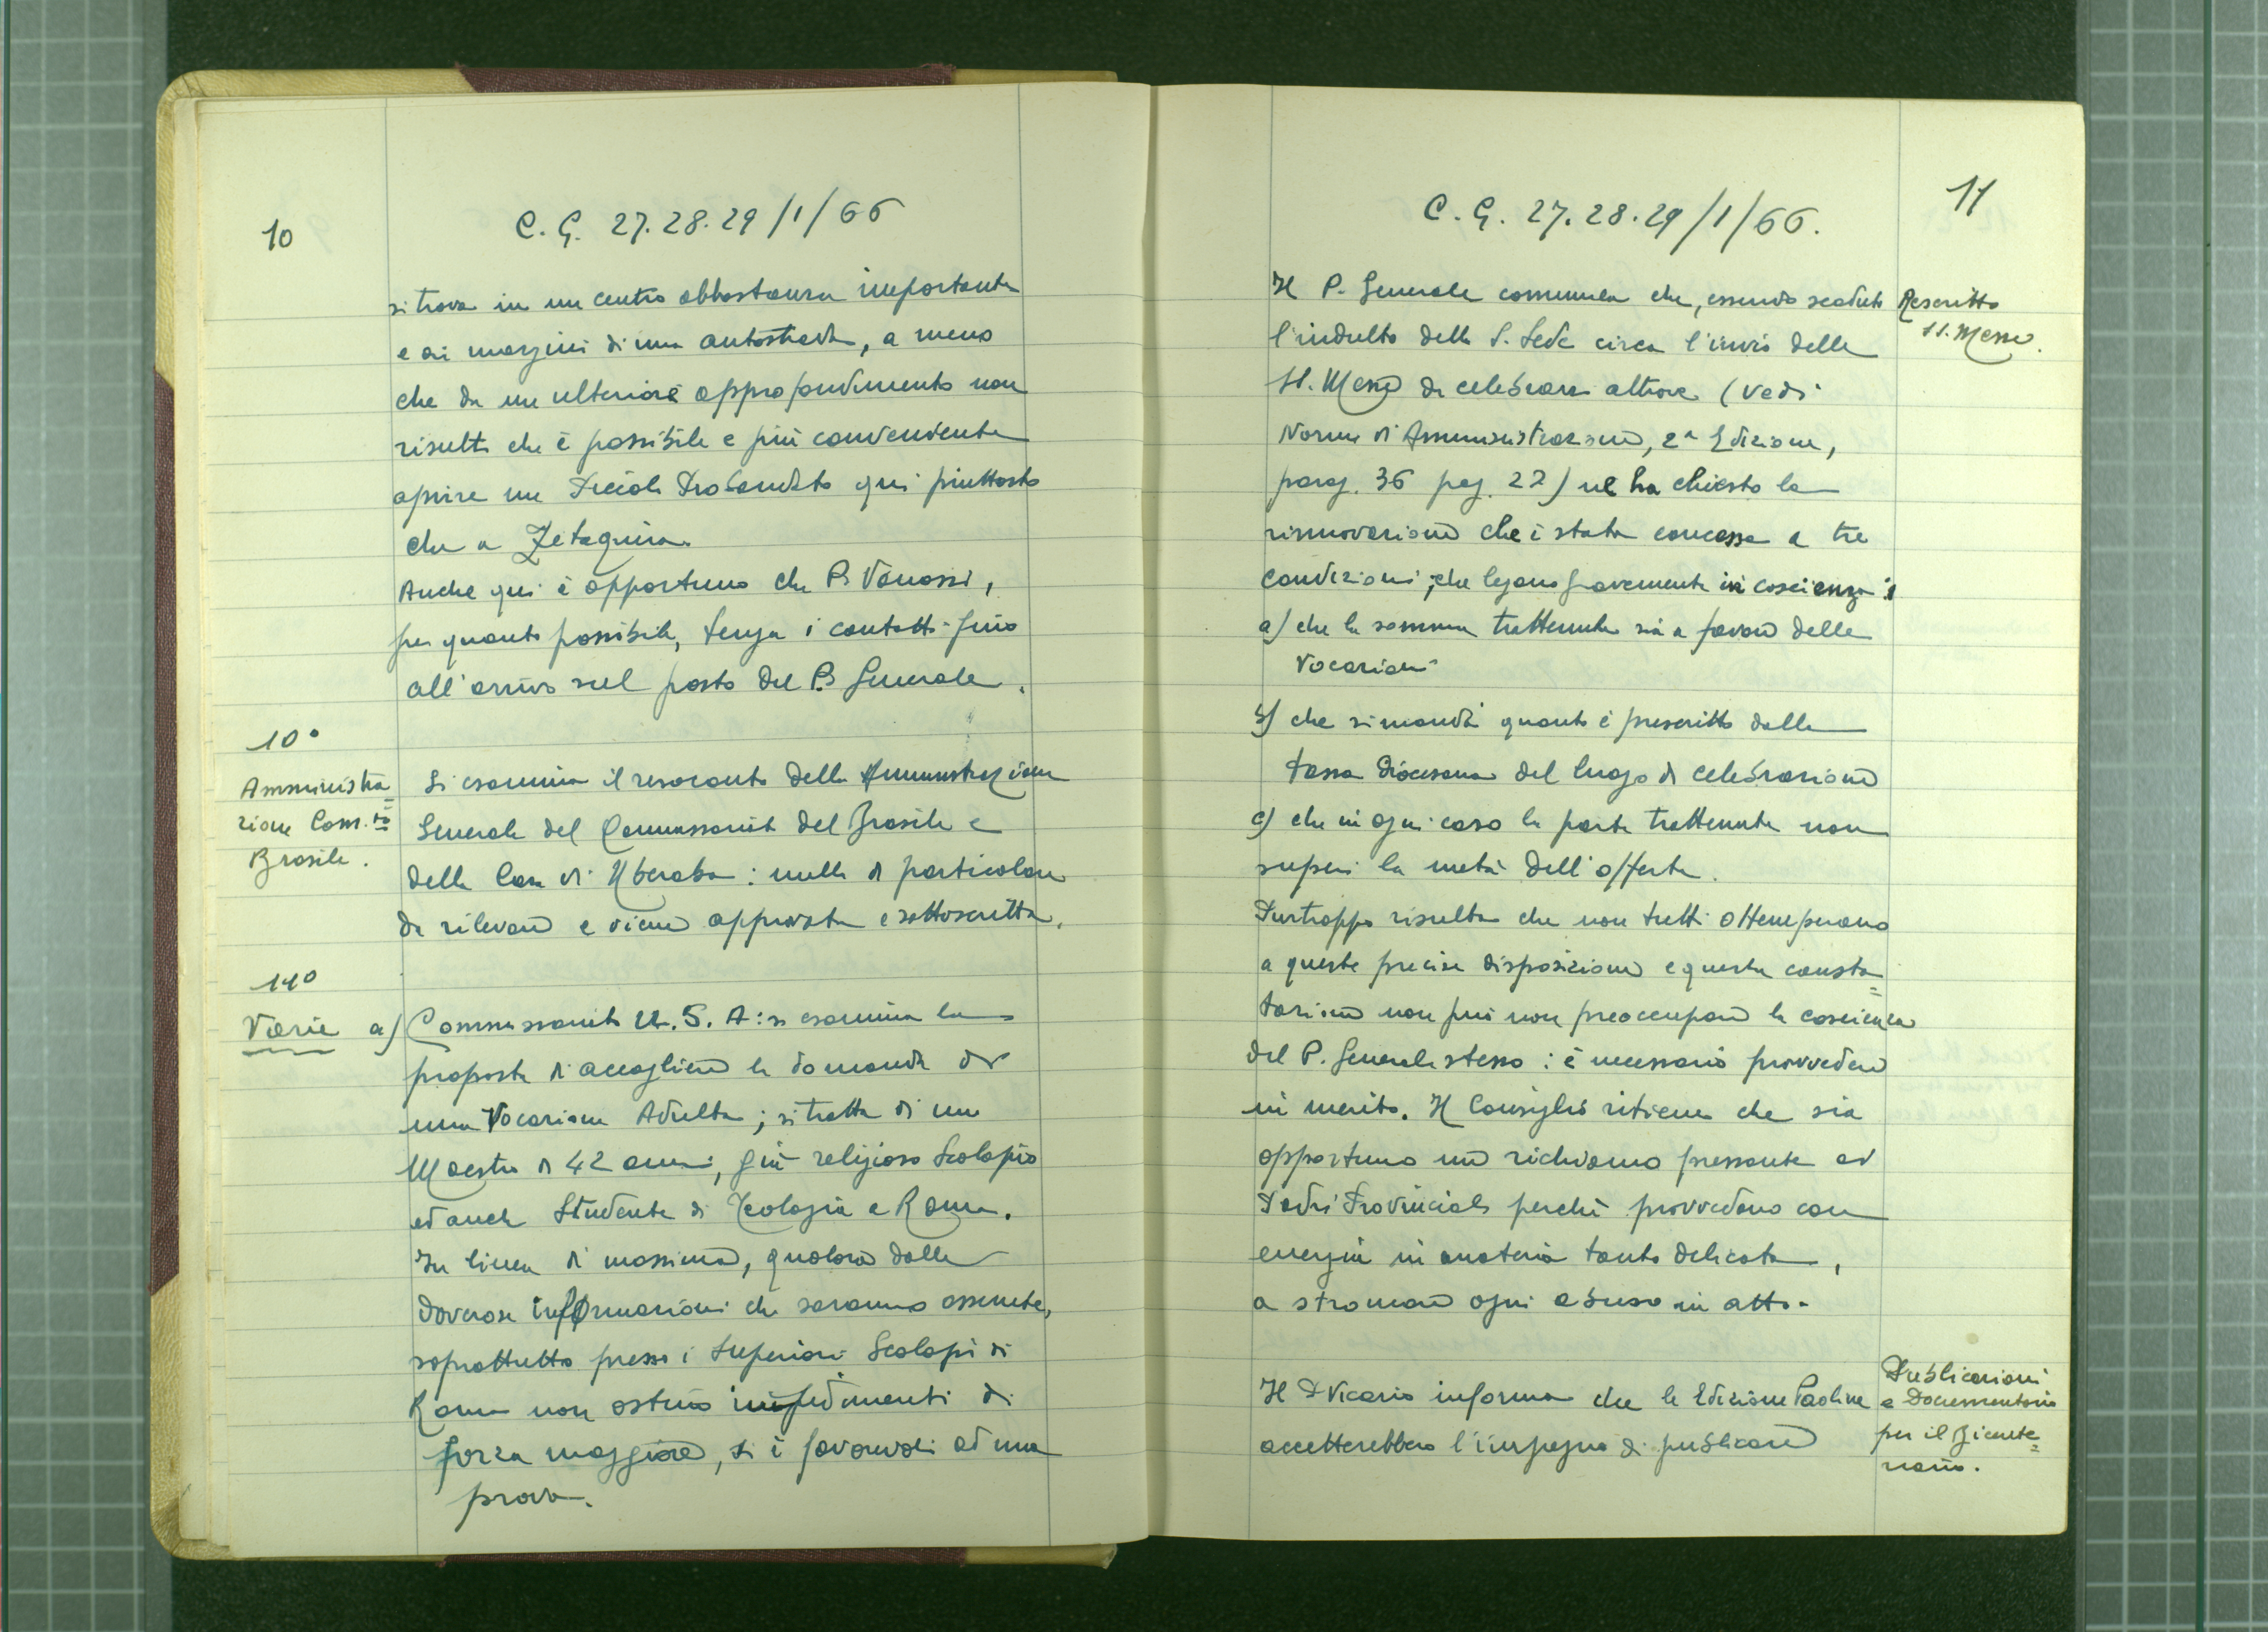 10
C. G. 27.28.29/1/66
si trova in un centro abbastanza importante
e ai margini di una autostrada, a meno
che da un ulteriore approfondimento non
risulti che è possibile e più convenente
aprire un Piccolo Probandato qui piuttosto
che a
Anche qui è opportuno che P. Vanossi,
per quanto possibile, tenga i contatti fino
all'arrivo sul posto del P. Generale.
10°
Amministra=
zione Com.to
Brasile.
Si esamina il resoconto della Amministrazione
Generale del Commissariato del Brasile e
della Casa di Uberaba: nulla di particolare
da rilevare e viene approvata e sottoscritta.
11°
Varie a) Commissariato U.S.A: si esamina la
proposta di accogliere la domanda di
una Vocazione Adulta; si tratta di un
Maestro di 42 anni, già religioso Scolopio
ed anche Studente di Teologia a Roma.
In linea di massima, qualora dalle
doverose informazioni che saranno assunte,
soprattutto presso i Superiori Scolopi di
Roma non ostino impedimenti di
forza maggiore, si è favorevoli ad una
prova.
11
C. G. 27.28.29/1/66.
Il P. Generale comunica che, essendo scaduto
l'indulto della S. Sede circa l'invio delle
SS. Messe da celebrare altrove (vedi
Norme di Amministrazione, 2ª Edizione,
parag. 36 pag. 22) ne ha chiesto la
rinnovazione che è stata concessa a tre
condizioni, che legano gravemente in coscienza:
a) che la somma trattenuta sia a favore delle
Vocazioni
b) che si mandi quanto è prescritto dalla
tassa diocesana del luogo di celebrazione
c) che in ogni caso la parte trattenuta non
superi la metà dell'offerta.
Purtroppo risulta che non tutti ottemperano
a queste precise disposizione e questa consta=
tazione non può non preoccupare la coscienza
del P. Generale stesso: è necessario provvedere
in merito. Il Consiglio ritiene che sia
opportuno un richiamo pressante ai
Padri Provinciali perchè provvedano con
energia in materia tanto delicata,
a stroncare ogni abuso in atto.
Rescritto
SS. Messe.
Il P. Vicario informa che le Edizione Paoline
accetterebbero l'impegno di pubblicare
Pubblicazioni
e Documentario
per il Bicente=
nario.